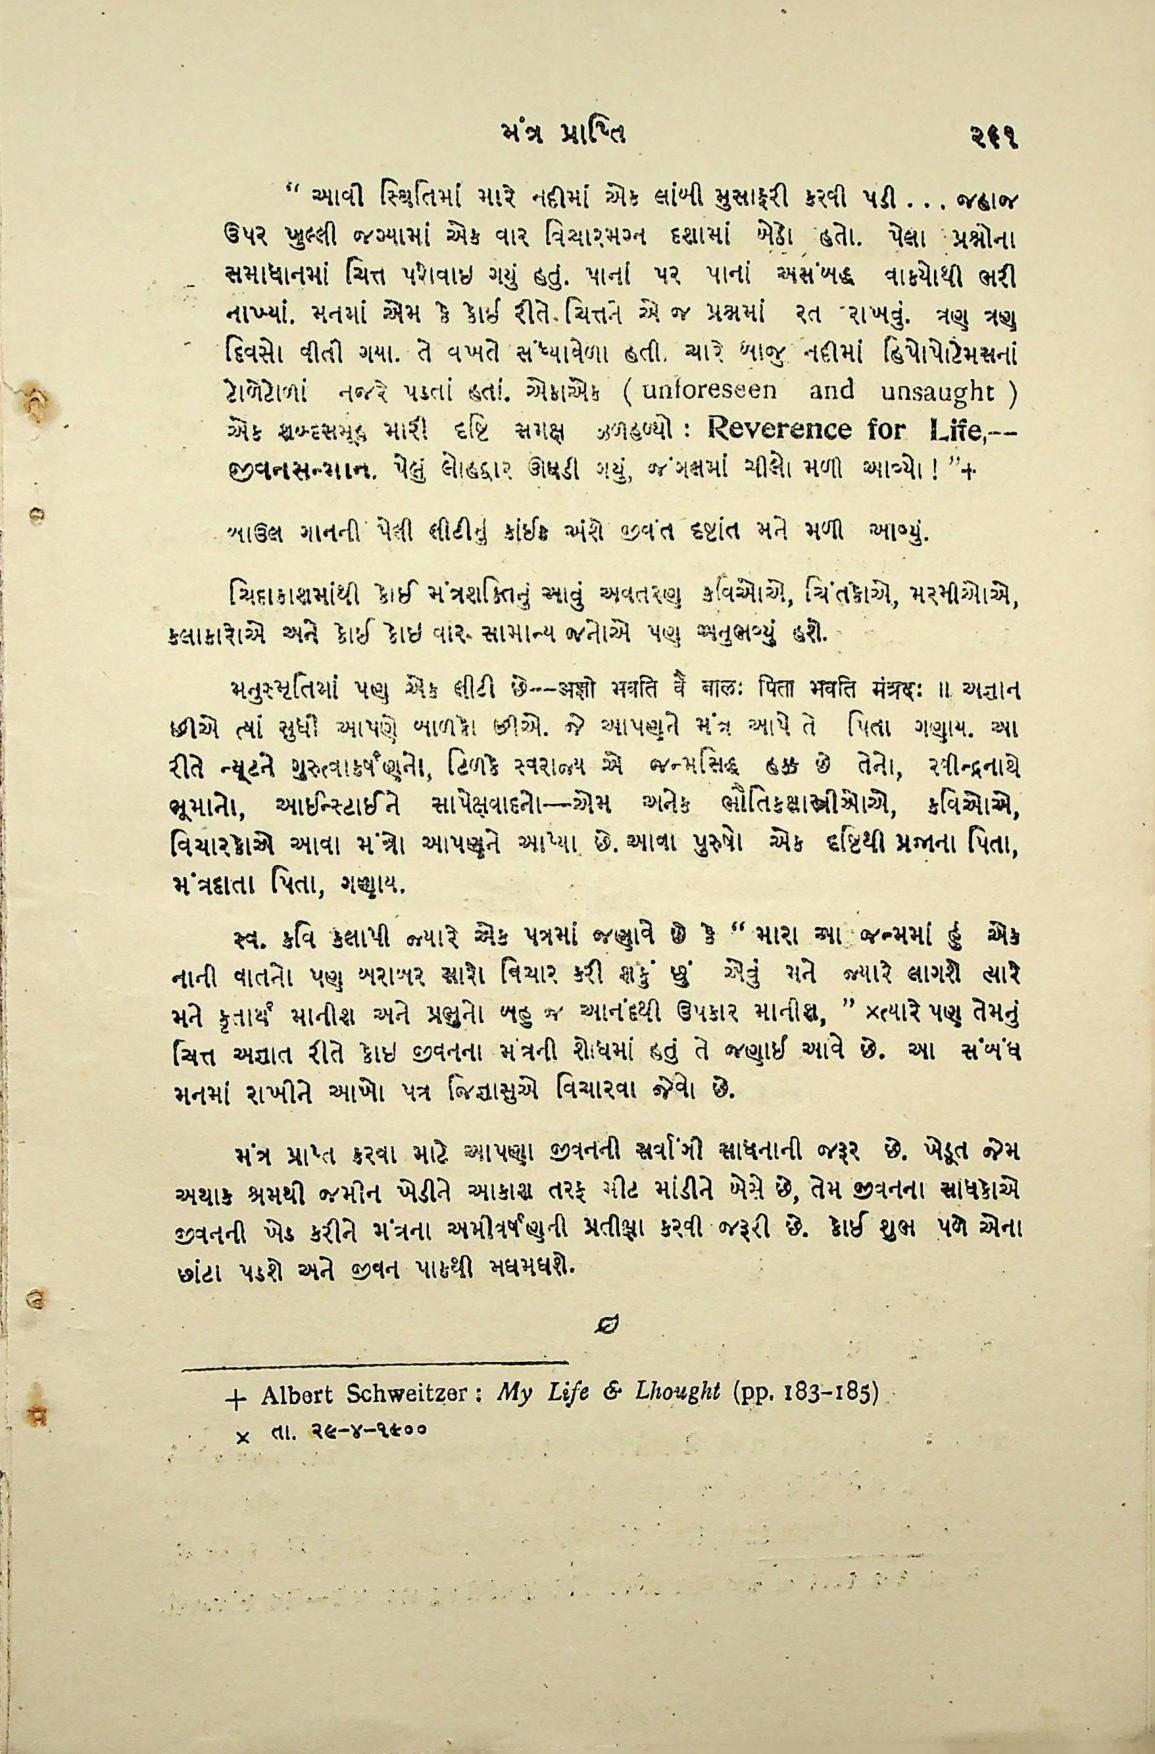 મંત્ર પ્રાપ્તિ ૨૬૧
“ આવી સ્થિતિમાં મારે નદીમાં એક લાંબી મુસાફરી કરવી પડી . . . જહાજ
ઉપર ખુલ્લી જગ્યામાં એક વાર વિચારમગ્ન દશામાં બેઠો હતો. પેલા પ્રશ્નોના
સમાધાનમાં ચિત્ત પરોવાઇ ગયું હતું. પાનાં પર પાનાં અસંબદ્ધ વાક્યોથી ભરી
નાખ્યાં. મનમાં એમ કે કોઈ રીતે ચિત્તને એ જ પ્રશ્નમાં રત રાખવું. ત્રણ ત્રણ
દિવસો વીતી ગયા. તે વખતે સંધ્યાવેળા હતી. ચારે બાજુ નદીમાં હિપોપોટેમસનાં
ટોળેટોળાં નજરે પડતાં હતાં. એકાએક ( unforeseen and unsaught )
એક શબ્દસમૂહ મારી દૃષ્ટિ સમક્ષ ઝળહળ્યો : Reverence for Life,--
જીવનસન્માન. પેલું લોહદ્વાર ઊઘડી ગયું, જંગલમાં ચીલો મળી આવ્યો ! ”+
બાઉલ ગાનની પેલી લીટીનું કાંઈક અંશે જીવંત દૃષ્ટાંત મને મળી આવ્યું.
ચિદાકાશમાંથી કોઈ મંત્રશક્તિનું આવું અવતરણ કવિઓએ, ચિંતકોએ, મરમીઓએ,
કલાકારોએ અને કોઈ કોઇ વાર સામાન્ય જનોએ પણ અનુભવ્યું હશે.
મનુસ્મૃતિમાં પણ એક લીટી છે--अज्ञो भवति वै बालः पिता भवति मंत्रदः ॥ અજ્ઞાન
છીએ ત્યાં સુધી આપણે બાળકો છીએ. જે આપણને મંત્ર આપે તે પિતા ગણાય. આ
રીતે ન્યૂટને ગુરુત્વાકર્ષણનો, ટિળકે સ્વરાજ્ય એ જન્મસિદ્ધ હક્ક છે તેનો, રવીન્દ્રનાથે
ભૂમાનો, આઈન્સ્ટાઈને સાપેક્ષવાદનો—એમ અનેક ભૌતિકશાસ્ત્રીઓએ, કવિઓએ,
વિચારકોએ આવા મંત્રો આપણને આપ્યા છે. આવા પુરુષો એક દૃષ્ટિથી પ્રજાના પિતા,
મંત્રદાતા પિતા, ગણાય.
સ્વ. કવિ કલાપી જ્યારે એક પત્રમાં જણાવે છે કે “ મારા આ જન્મમાં હું એક
નાની વાતનો પણ બરાબર સારો વિચાર કરી શકું છું એવું મને જ્યારે લાગશે ત્યારે
મને કૃતાર્થ માનીશ અને પ્રભુનો બહુ જ આનંદથી ઉપકાર માનીશ, ” ×ત્યારે પણ તેમનું
ચિત્ત અજ્ઞાત રીતે કોઇ જીવનના મંત્રની શોધમાં હતું તે જણાઈ આવે છે. આ સંબંધ
મનમાં રાખીને આખો પત્ર જિજ્ઞાસુએ વિચારવા જેવો છે.
મંત્ર પ્રાપ્ત કરવા માટે આપણા જીવનની સર્વાંગી સાધનાની જરૂર છે. ખેડૂત જેમ
અથાક શ્રમથી જમીન ખેડીને આકાશ તરફ મીટ માંડીને બેસે છે, તેમ જીવનના સાધકોએ
જીવનની ખેડ કરીને મંત્રના અમીવર્ષણની પ્રતીક્ષા કરવી જરૂરી છે. કોઈ શુભ પળે એના
છાંટા પડશે અને જીવન પાકથી મઘમઘશે.
+ Albert Schweitzer : My Life & Lhought (pp. 183-185)
× તા. ૨૯-૪-૧૯૦૦